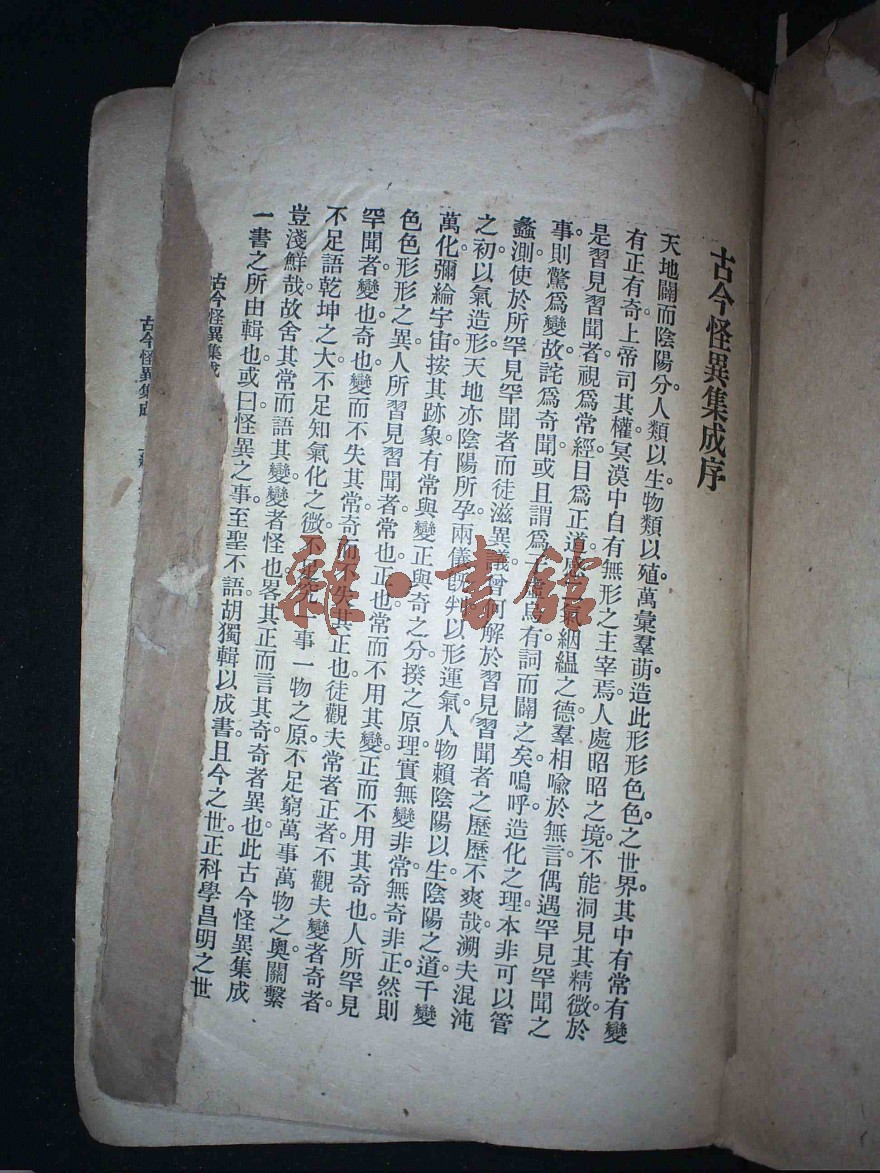 古今怪異集成序
天地闢而陰陽分。人類以生。物類以殖。萬彙羣萌。造此形形色色之世界。其中有常有變
有正有奇。上帝司其權。冥漠中自有無形之主宰焉。人處昭昭之境。不能洞見其精微。於
是習見習聞者。視爲常經。目爲正道。氣絪縕之德。羣相喩於無言。偶遇罕見罕聞之
事。則驚爲變故。詫爲奇聞。或且謂爲子虛烏有。詞而闢之矣。嗚呼。造化之理。本非可以管
蠡測。使於所罕見罕聞者而徒滋異議。曾何解於習見習聞者之歷歷不爽哉。溯夫混沌
之初。以氣造形。天地亦陰陽所孕。兩儀旣判。以形運氣。人物賴陰陽以生。陰陽之道。千變
萬化。彌綸宇宙。按其跡象。有常與變正與奇之分。揆之原理。實無變非常。無奇非正。然則
色色形形之異。人所習見習聞者。常也。正也。常而不用其變。正而不用其奇也。人所罕見
罕聞者。變也。奇也。變而不失其常。奇而不失其正也。徒觀夫常者正者。不觀夫變者奇者
不足語乾坤之大。不足知氣化之微。不足究事一物之原。不足窮萬事萬物之奧。關繫
豈淺鮮哉。故舍其常而語其變。變者怪也。畧其正而言其奇。奇者異也。此古今怪異集成
一書之所由輯也。或曰。怪異之事。至聖不語。胡獨輯以成書。且今之世。正科學昌明之世
古今怪異集成
古今怪異集成
雜·書館